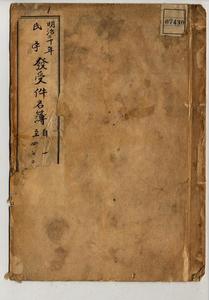 明治二十年
民事
發受件名簿
自一
至四
07430